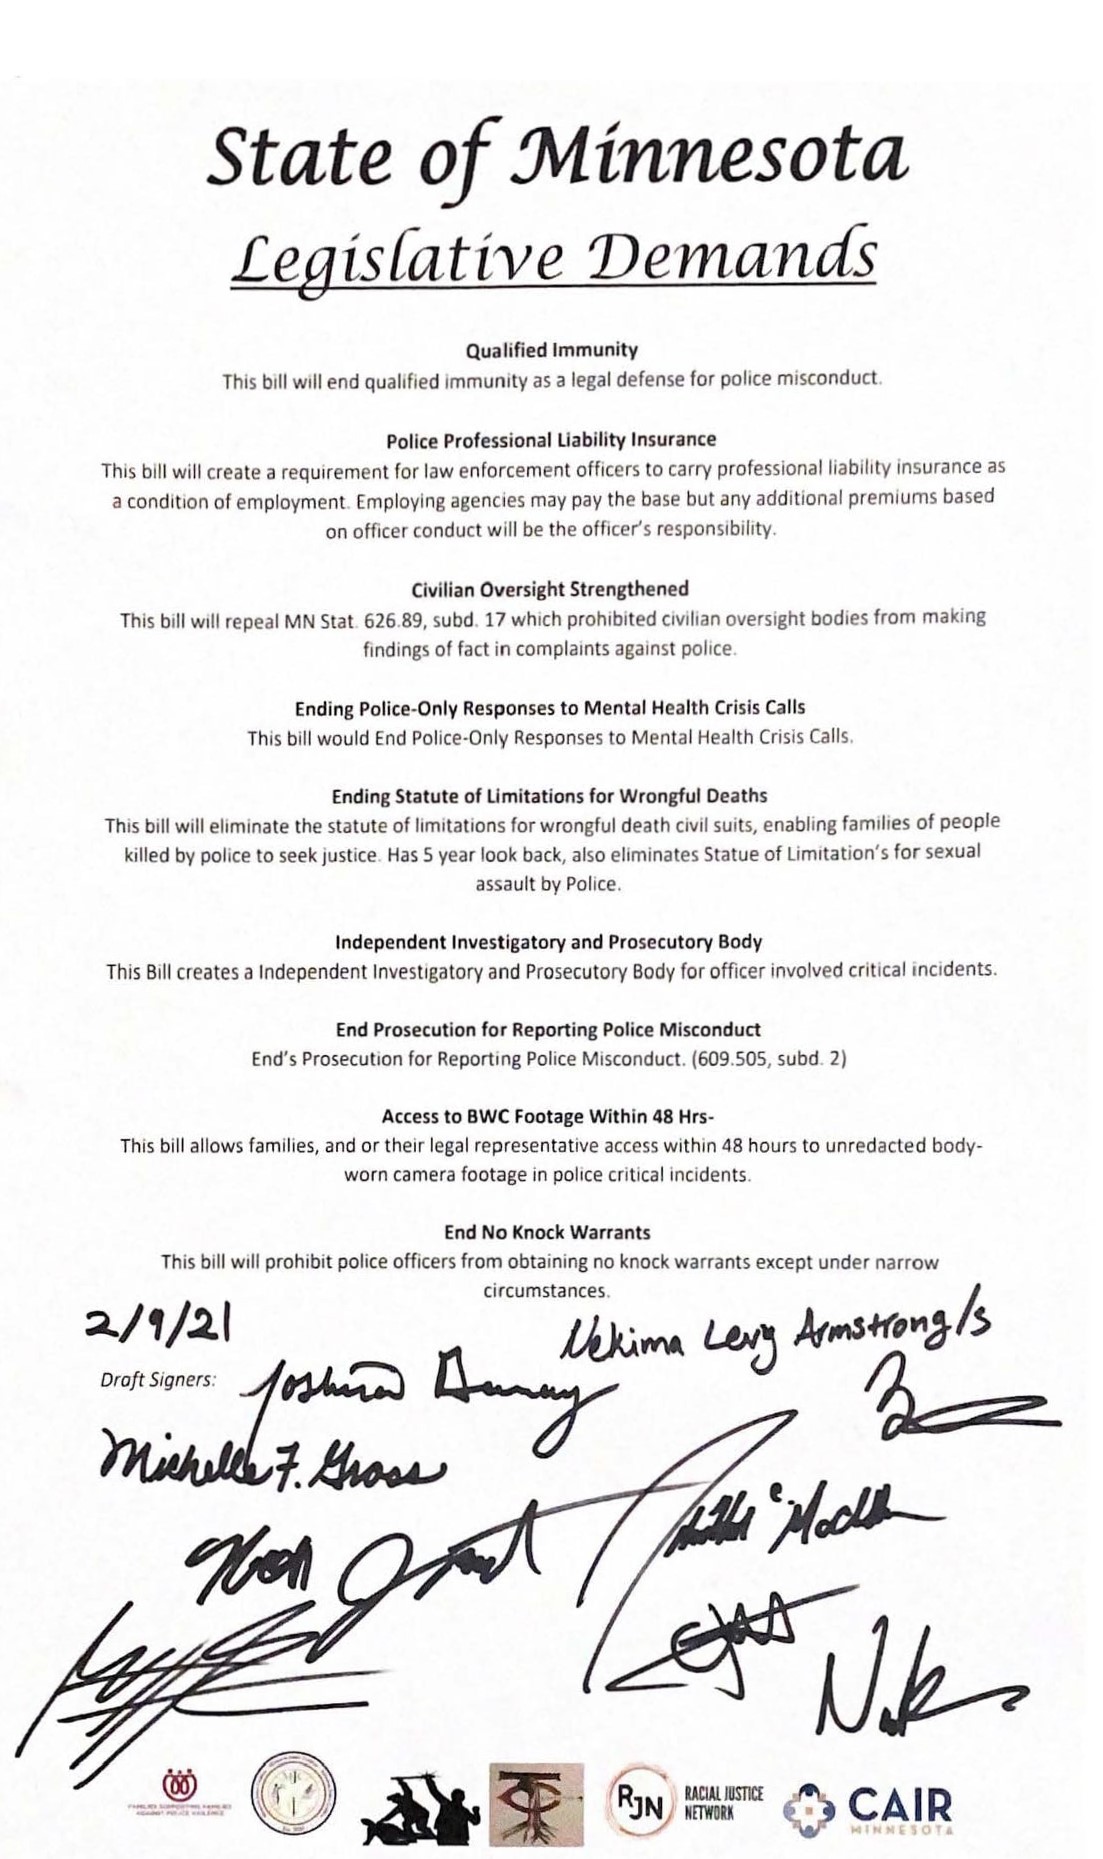 State of Minnesota
Legislative Demands
Qualified Immunity
This bill will end qualified immunity as a legal defense for police misconduct.
Police Professional Liability Insurance
This bill will create a requirement for law enforcement officers to carry professional liability insurance as
a condition of employment. Employing agencies may pay the base but any additional premiums based
on officer conduct will be the officer's responsibility.
Civilian Oversight Strengthened
This bill will repeal MN Stat. 626.89, subd. 17 which prohibited civilian oversight bodies from making
findings of fact in complaints against police.
Ending Police-Only Responses to Mental Health Crisis Calls
This bill would End Police-Only Responses to Mental Health Crisis Calls.
Ending Statute of Limitations for Wrongful Deaths
This bill will eliminate the statute of limitations for wrongful death civil suits, enabling families of people
killed by police to seek justice. Has 5 year look back, also eliminates Statue of Limitation's for sexual
assault by Police.
Independent Investigatory and Prosecutory Body
This Bill creates a Independent Investigatory and Prosecutory Body for officer involved critical incidents.
End Prosecution for Reporting Police Misconduct
End's Prosecution for Reporting Police Misconduct. (609.505, subd. 2)
Access to BWC Footage Within 48 Hrs-
This bill allows families, and or their legal representative access within 48 hours to unredacted body-
worn camera footage in police critical incidents.
End No Knock Warrants
This bill will prohibit police officers from obtaining no knock warrants except under narrow
circumstances.
2/9/21
Nekima Levy Armstrong/s
Draft Signers:
Michelle F. Gross
FAMILIES SUPPORTING FAMILIES
AGAINST POLICE VIOLENCE
RJN
RACIAL JUSTICE
NETWORK
CAIR
MINNESOTA